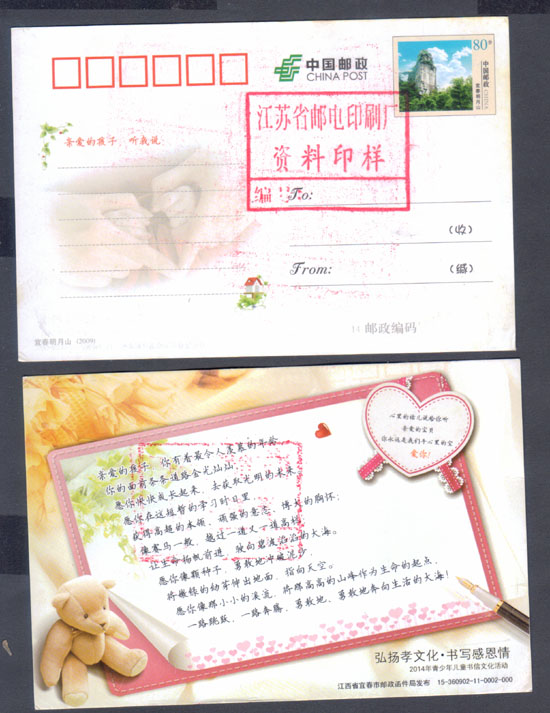 中国邮政
CHINA POST
80分
中国邮政
CHINA
宜春明月山
江苏省邮电印刷厂
资料印样
编号
亲爱的孩子，听我说
To:
(收)
From:
(缄)
邮政编码
宜春明月山 (2009)
心里的话儿说给你听
亲爱的宝贝
你永远是我们手心里的宝
爱你!
亲爱的孩子，你有着最令人羡慕的年龄
你的面前条条道路金光灿灿，
愿你快快成长起来，去获取光明的未来
愿你在这短暂的学习时日里，
获得高超的本领、顽强的意志、博大的胸怀；
像赛马一般，越过一道又一道高栏
让生命扬帆前进，驶向碧波滔滔的大海。
愿你像颗种子，勇敢地冲破泥沙，
将嫩绿的幼芽伸出地面，指向天空。
愿你像那小小的溪流，将那高高的山峰作为生命的起点，
一路跳跃，一路奔腾，勇敢地、勇敢地奔向生活的大海！
弘扬孝文化·书写感恩情
2014年青少年儿童书信文化活动
江西省宜春市邮政函件局发布 15-360902-11-0002-000